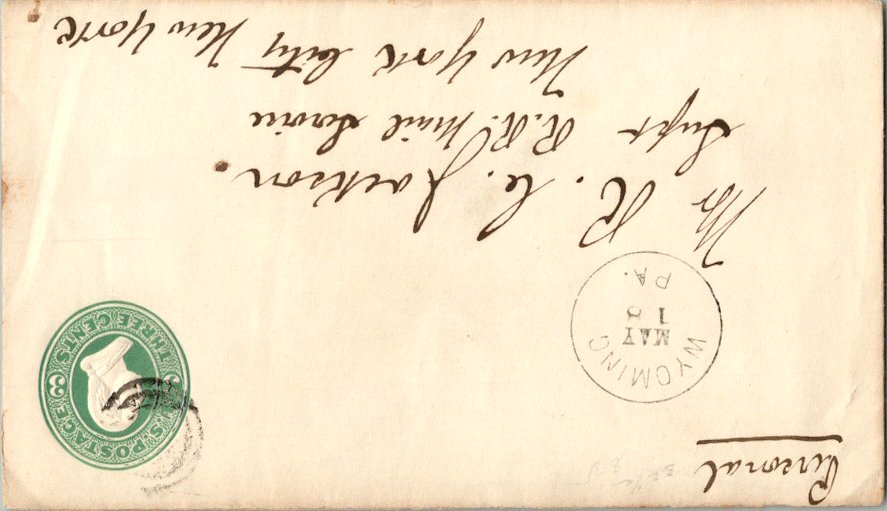 Personal
U.S. POSTAGE
3 3
THREE CENTS
WYOMING
MAY
18
PA.
Mr R. C. Jackson.
Supt R.R. Mail Service
New York City New York.